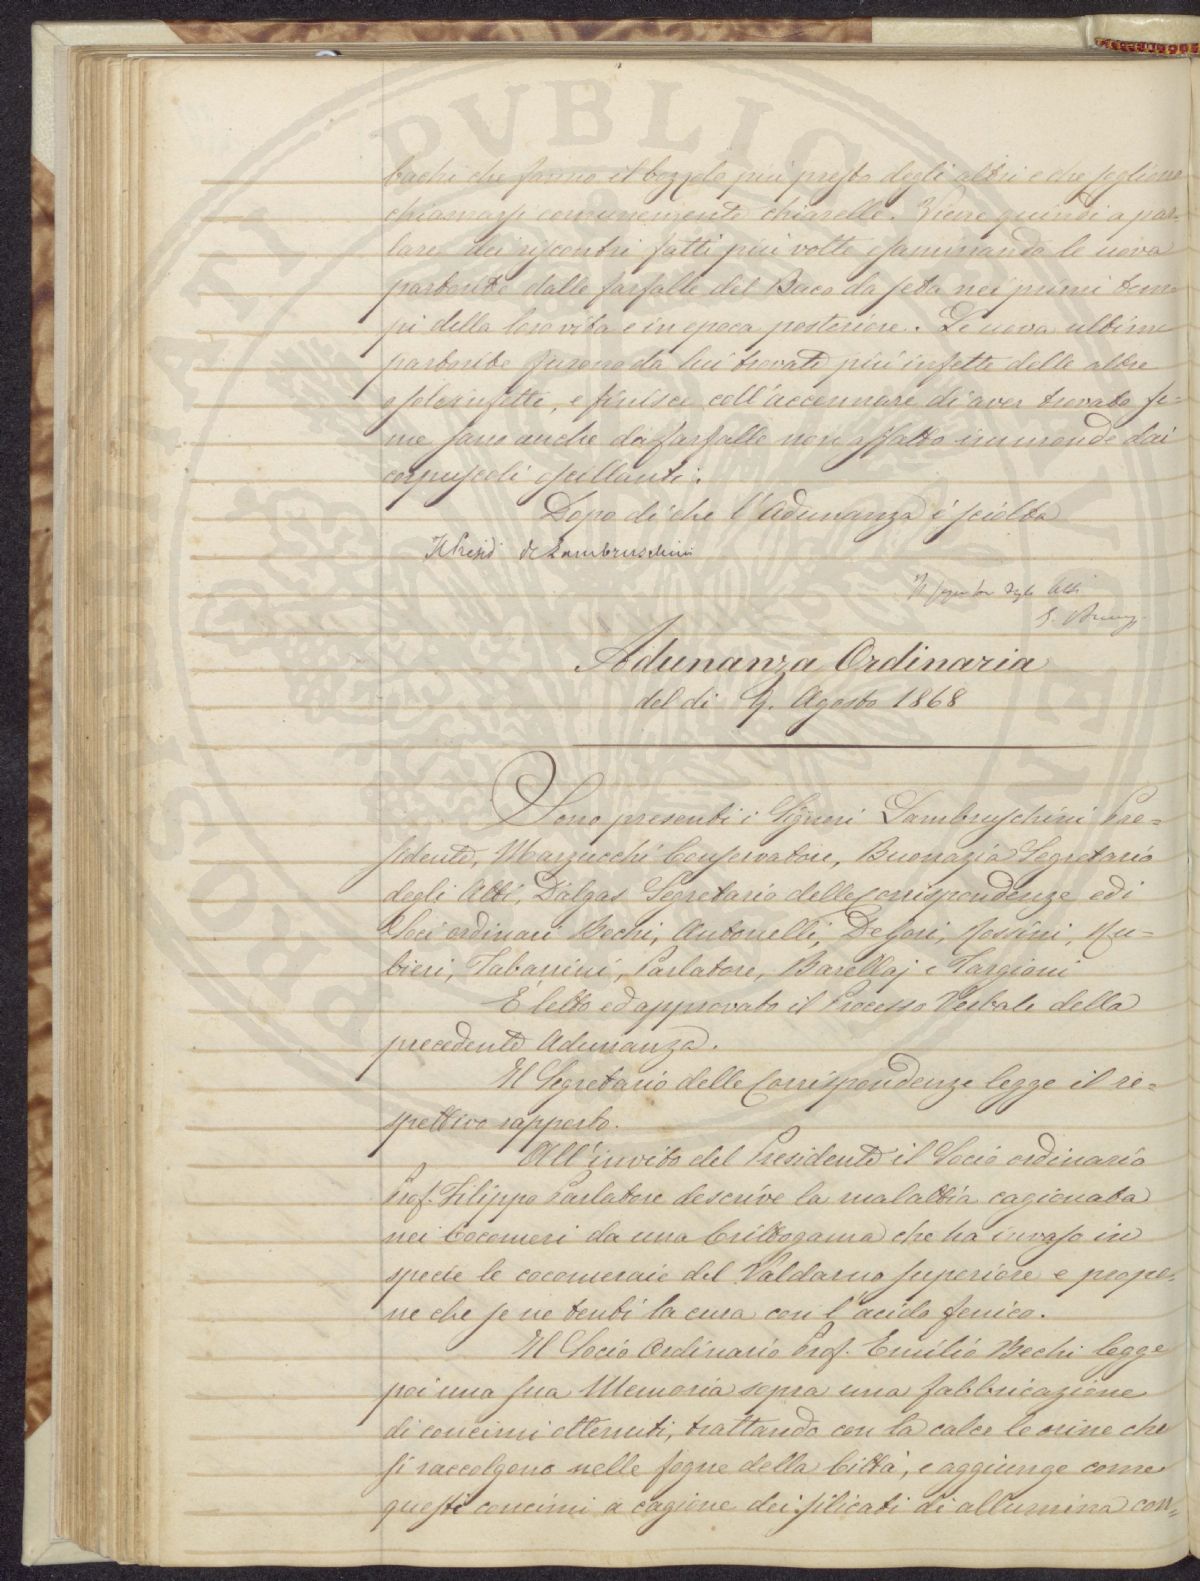 bachi che fanno il bozzolo più presto degli altri e che sogliono
chiamarsi comunemente chiarelle. Viene quindi a par-
lare dei riscontri fatti più volte esaminando le uova
partorite dalle farfalle del Baco da seta nei primi tem-
pi della loro vita e in epoca posteriore. Le uova ultime
partorite furono da lui trovate più infette delle altre
o sole infette, e finisce coll'accennare di aver trovato se-
me sano anche da farfalle non affatto immonde dai
corpuscoli oscillanti.
Dopo di che l'Adunanza è sciolta
Il Presid. Lambruschini
Il Segretario degli Atti
Adunanza Ordinaria
del di 9. Agosto 1868
Sono presenti i Signori Lambruschini Pre=
sidente, Marzucchi Conservatore, Buonazia Segretario
degli Atti, Dalgas Segretario delle Corrispondenze ed i
Soci ordinari Bechi, Antonelli, De Gori, Rossini, Ru=
bieri, Tabarrini, Parlatore, Barellaj e Targioni
È letto ed approvato il Processo Verbale della
precedente Adunanza.
Il Segretario delle Corrispondenze legge il re=
spettivo rapporto.
All'invito del Presidente il Socio ordinario
Prof. Filippo Parlatore descrive la malattia cagionata
nei Cocomeri da una Crittogama che ha invaso in
specie le cocomeraie del Valdarno superiore e propo-
ne che se ne tenti la cura con l'acido fenico.
Il Socio Ordinario Prof. Emilio Bechi legge
poi una sua Memoria sopra una fabbricazione
di concimi ottenuti, trattando con la calce le orine che
si raccolgono nelle fogne della Città, e aggiunge come
questi concimi a cagione dei silicati di allumina con=